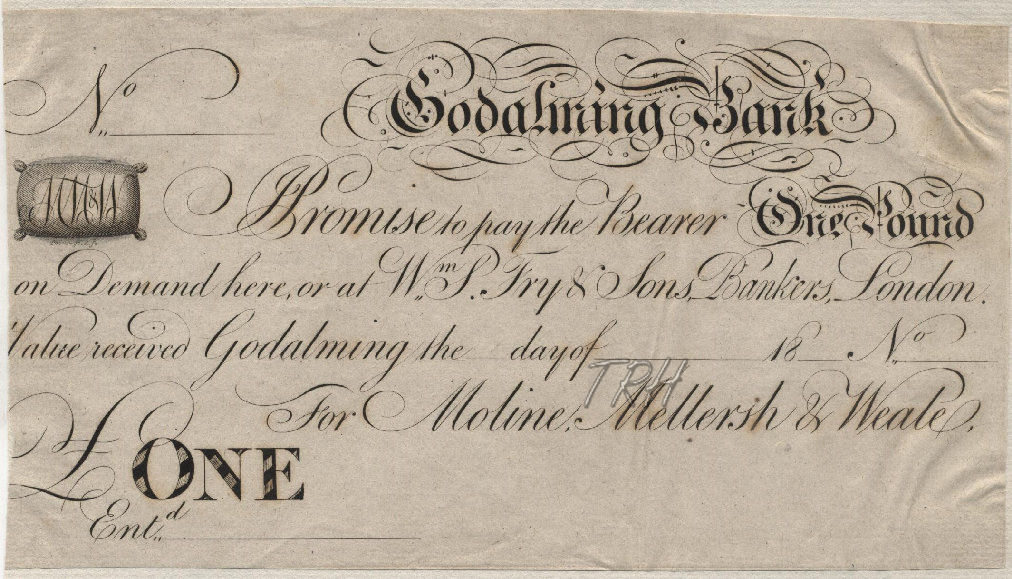 No
Godalming Bank
I Promise to pay the Bearer One Pound
on Demand here, or at Wm. S. Fry & Sons, Bankers, London.
Value received Godalming the day of 18 No
TRH
For Moline, Mellersh & Weale,
£ ONE
Entd.